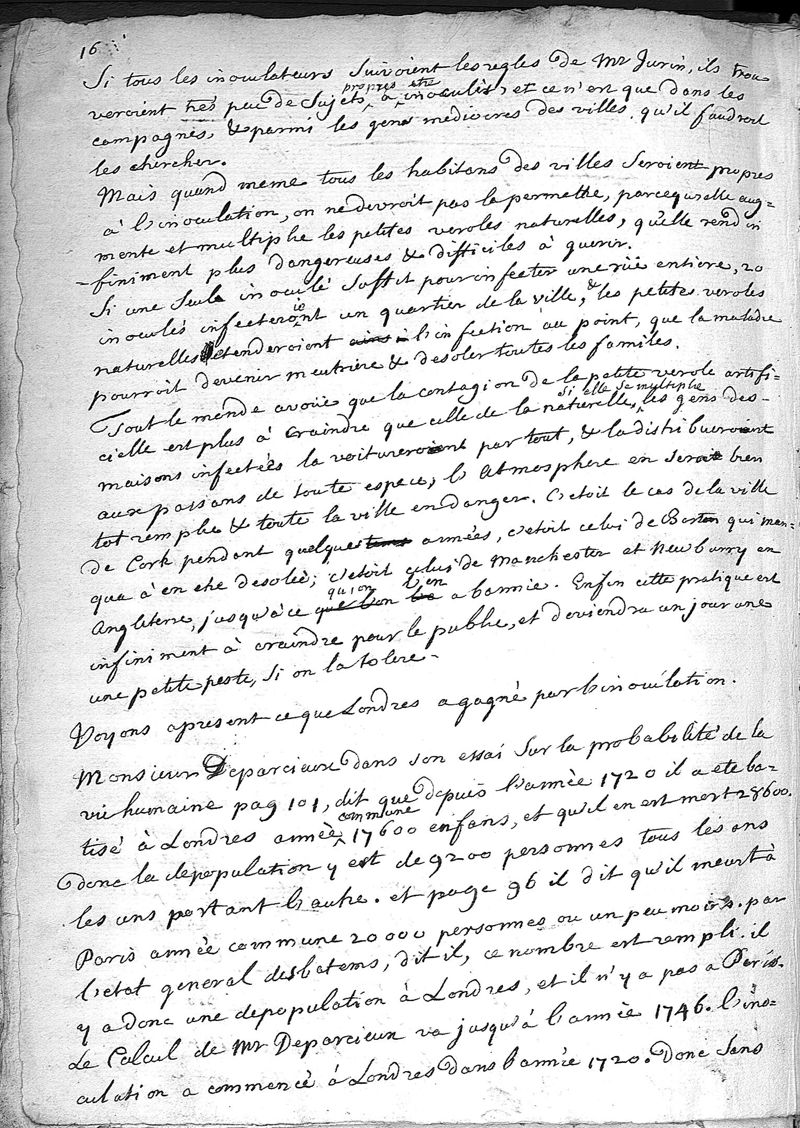 16
Si tous les inoculateurs Suivoient les regles de Mr Jurin, ils trou
propres etre
veroient trés peu de Sujets a inoculés, et ce n'est que dans les
campagnes, & parmi les gens médiocres des villes qu'il faudroit
les chercher.
Mais quand meme tous les habitans des villes Seroient propres
à l'inoculation, on ne devroit pas la permettre, parcequ'elle aug=
mente et multiplie les petites veroles naturelles, qu'elle rend in
-finiment plus dangereuses & difficiles à guerir.
Si une Seule inoculé Suffit pour infecter une rüe entiere, 20
inoculés infecteroient un quartier de la ville, & les petites veroles
naturelles etenderoient l'infection au point, que la maladie
pourroit devenir meutriere & desoler toutes les familes.
Tout le monde avoüe que la contagion de la petite verole artifi=
si elle se multiplie
cielle est plus à Craindre que celle de la naturelle, les gens des-
maisons infectées la voitureroient par tout, & la distribueroient
aux passans de toute espece; l'Atmosphere en Seroit bien
tot remplie & toute la ville en danger. C'etoit le cas de la ville
de Cork pendant quelques années, c'etoit celui de Boston qui man-
qua à en etre desolée; c'etoit celui de Manchester et Newburry en
qu'on l'en
Angleterre, jusqu'à ce que l'on a bannie. Enfin cette pratique est
infiniment à craindre pour le public, et deviendra un jour une
une petite peste, Si on la tolere-
Voyons apresent ce que Londres a gagné par l'inoculation.
Monsieur Deparcieux dans son essai Sur la probabilité de la
vie humaine pag 101, dit que depuis l'année 1720 il a ete ba-
commune
tisé à Londres année 17600 enfans, et qu'il en est mort 28600.
Donc la depopulation y est de 9200 personnes tous les ans
les ans portant l'autre. et page 96 il dit qu'il meurt à
Paris année commune 20000 personnes ou un peu moins. par
l'etat general des batems, dit il, ce nombre est rempli. il
y a donc une depopulation à Londres, et il n'y a pas a Paris.
Le Calcul de Mr Deparcieux va jusqu'à l'année 1746. l'ino-
culation a commencé à Londres dans l'année 1720. Donc Sans